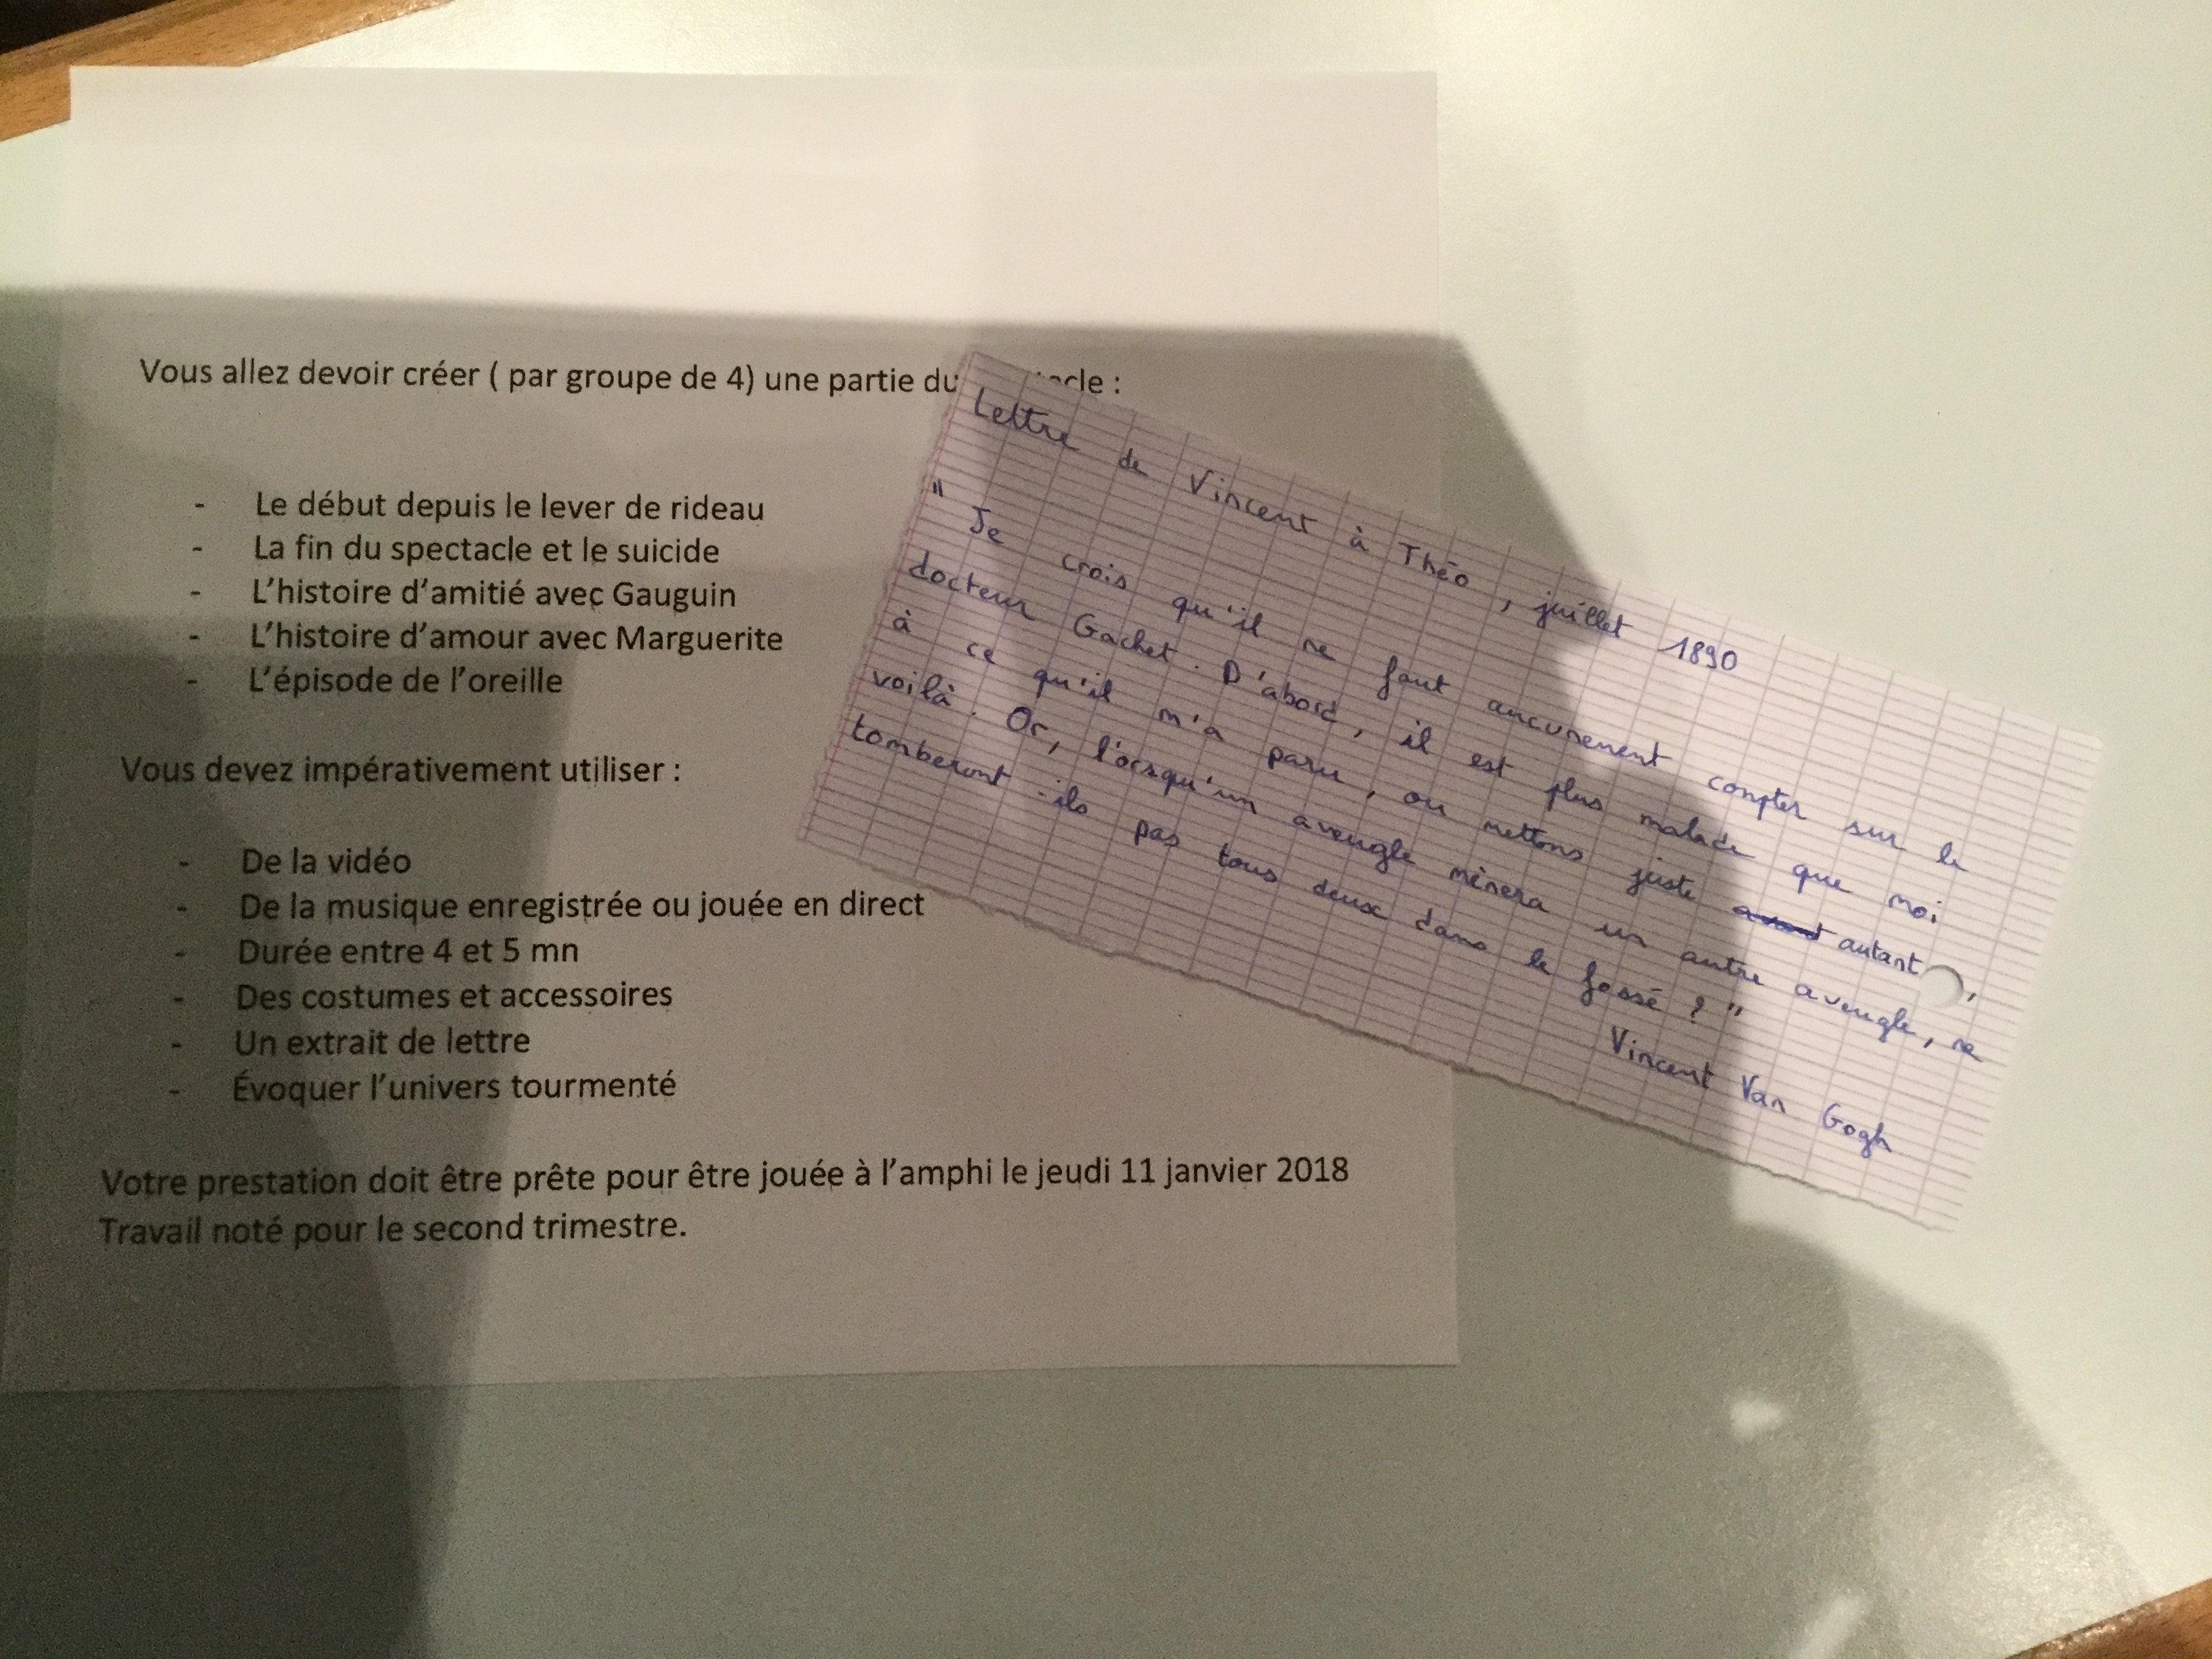 Vous allez devoir créer ( par groupe de 4) une partie du :
- Le début depuis le lever de rideau
- La fin du spectacle et le suicide
- L'histoire d'amitié avec Gauguin
- L'histoire d'amour avec Marguerite
- L'épisode de l'oreille
Vous devez impérativement utiliser :
- De la vidéo
- De la musique enregistrée ou jouée en direct
- Durée entre 4 et 5 mn
- Des costumes et accessoires
- Un extrait de lettre
- Évoquer l'univers tourmenté
Votre prestation doit être prête pour être jouée à l'amphi le jeudi 11 janvier 2018
Travail noté pour le second trimestre.
Lettre de Vincent à Théo, juillet 1890
" Je crois qu'il ne faut aucunement compter sur le
docteur Gachet. D'abord, il est plus malade que moi
à ce qu'il m'a paru, ou mettons juste autant,
voilà. Or, l'orsqu'un aveugle mènera un autre aveugle, ne
tomberont-ils pas tous deux dans le fossé ? "
Vincent Van Gogh